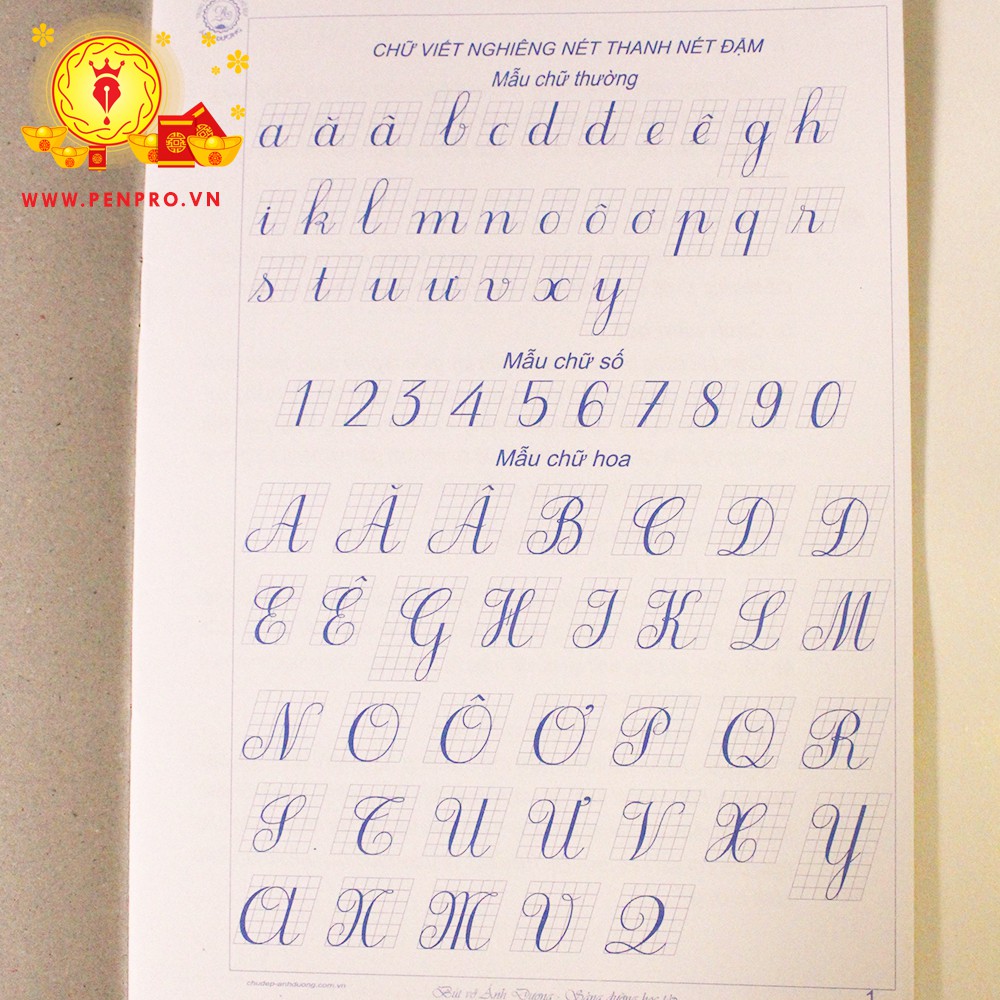 WWW.PENPRO.VN
CHỮ VIẾT NGHIÊNG NÉT THANH NÉT ĐẬM
Mẫu chữ thường
a ă â b c d đ e ê g h
i k l m n o ô ơ p q r
s t u ư v x y
Mẫu chữ số
1 2 3 4 5 6 7 8 9 0
Mẫu chữ hoa
A Ă Â B C D Đ
E Ê G H I K L M
N O Ô Ơ P Q R
S T U Ư V X Y
A N M V Q
chudep-anhduong.com.vn
Bút vở Ánh Dương - Sáng đường học
1